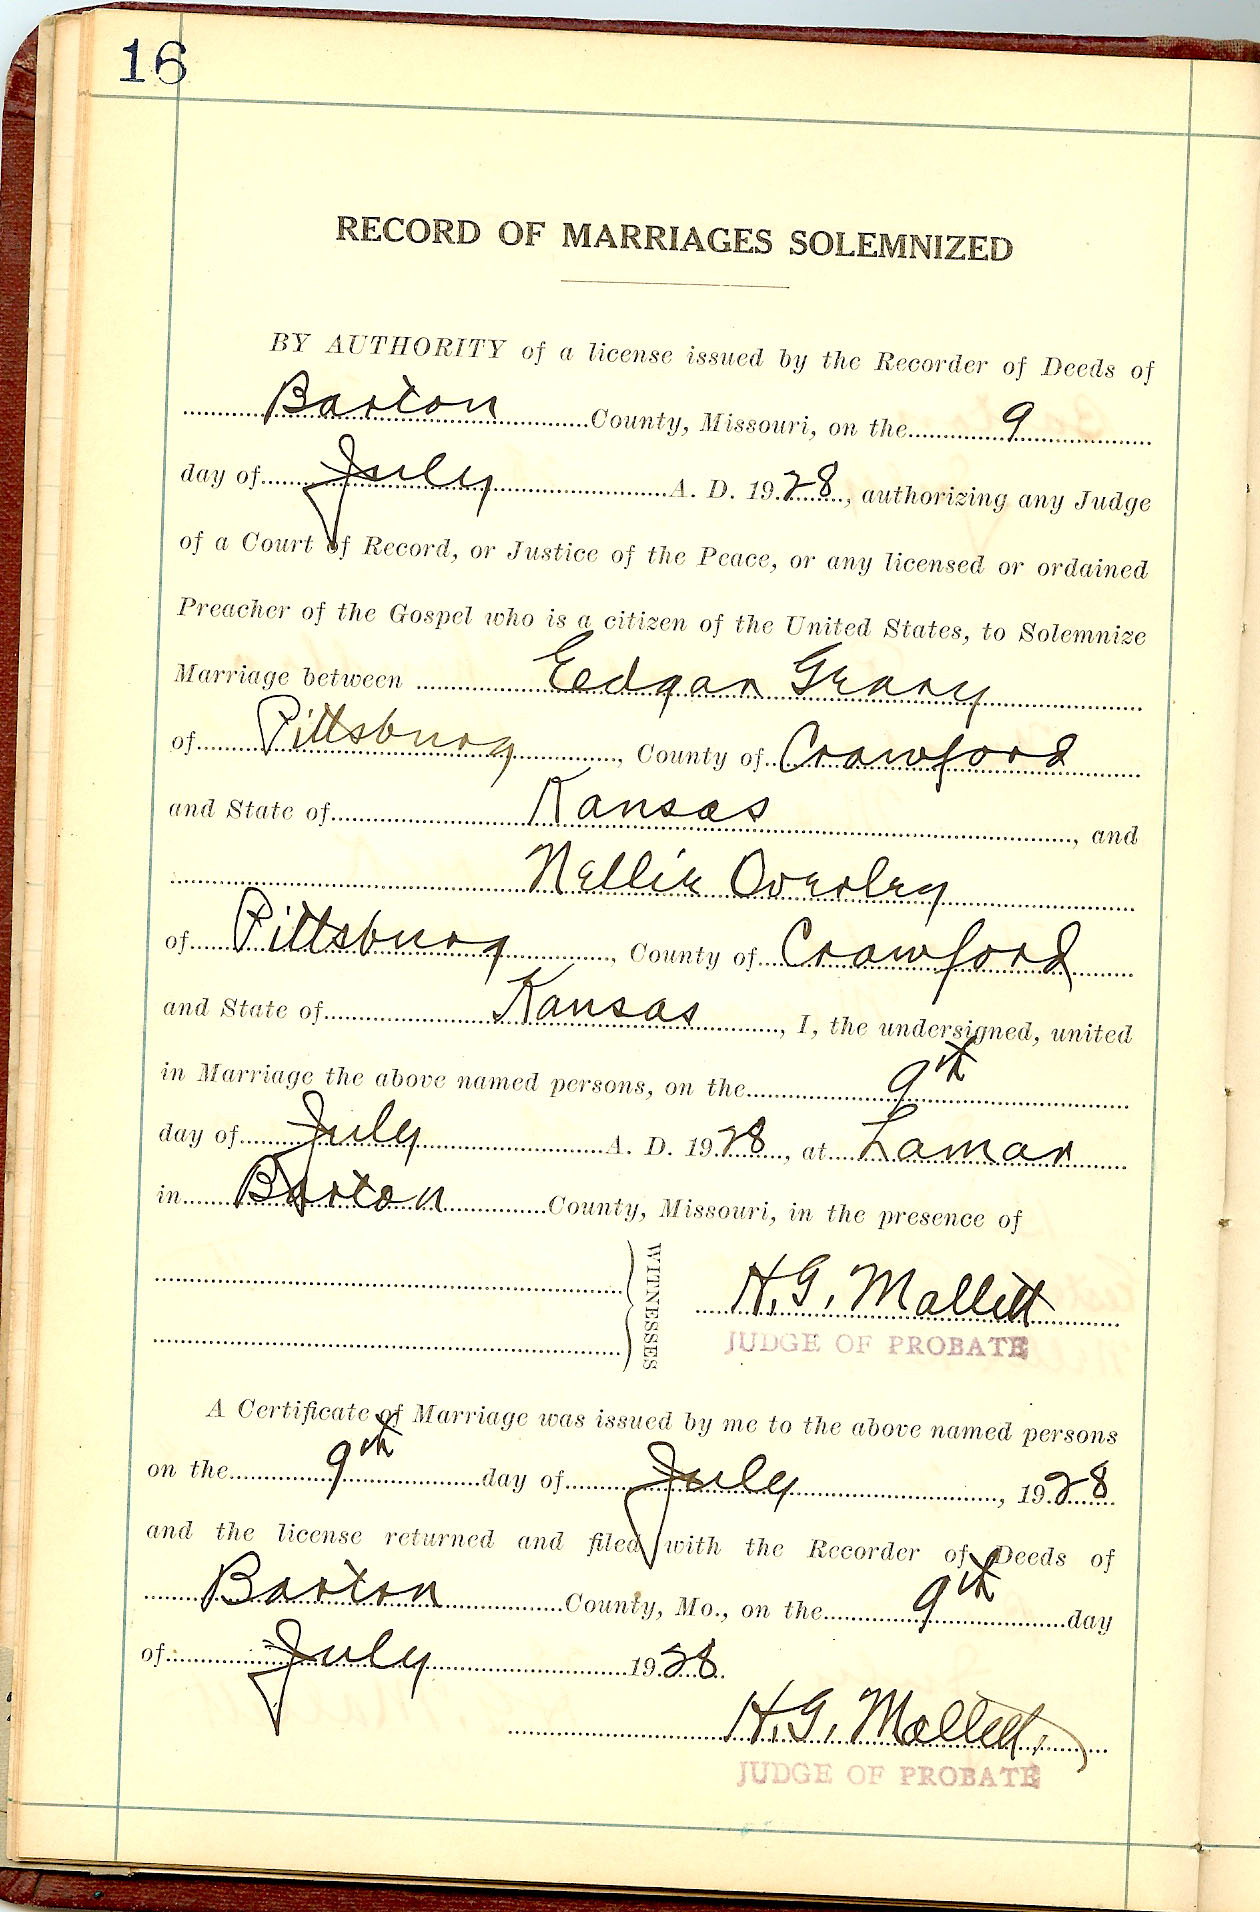 16
RECORD OF MARRIAGES SOLEMNIZED
BY AUTHORITY of a license issued by the Recorder of Deeds of
Barton County, Missouri, on the 9
day of July A. D. 1928, authorizing any Judge
of a Court of Record, or Justice of the Peace, or any licensed or ordained
Preacher of the Gospel who is a citizen of the United States, to Solemnize
Marriage between Eedgar Geary
of Pittsburg, County of Crawford
and State of Kansas, and
Nellie Overley
of Pittsburg, County of Crawford
and State of Kansas, I, the undersigned, united
in Marriage the above named persons, on the 9th
day of July A. D. 1928, at Lamar
in Barton County, Missouri, in the presence of
WITNESSES
H. G. Mallett
JUDGE OF PROBATE
A Certificate of Marriage was issued by me to the above named persons
on the 9th day of July, 1928
and the license returned and filed with the Recorder of Deeds of
Barton County, Mo., on the 9th day
of July 1928
H. G. Mallett,
JUDGE OF PROBATE